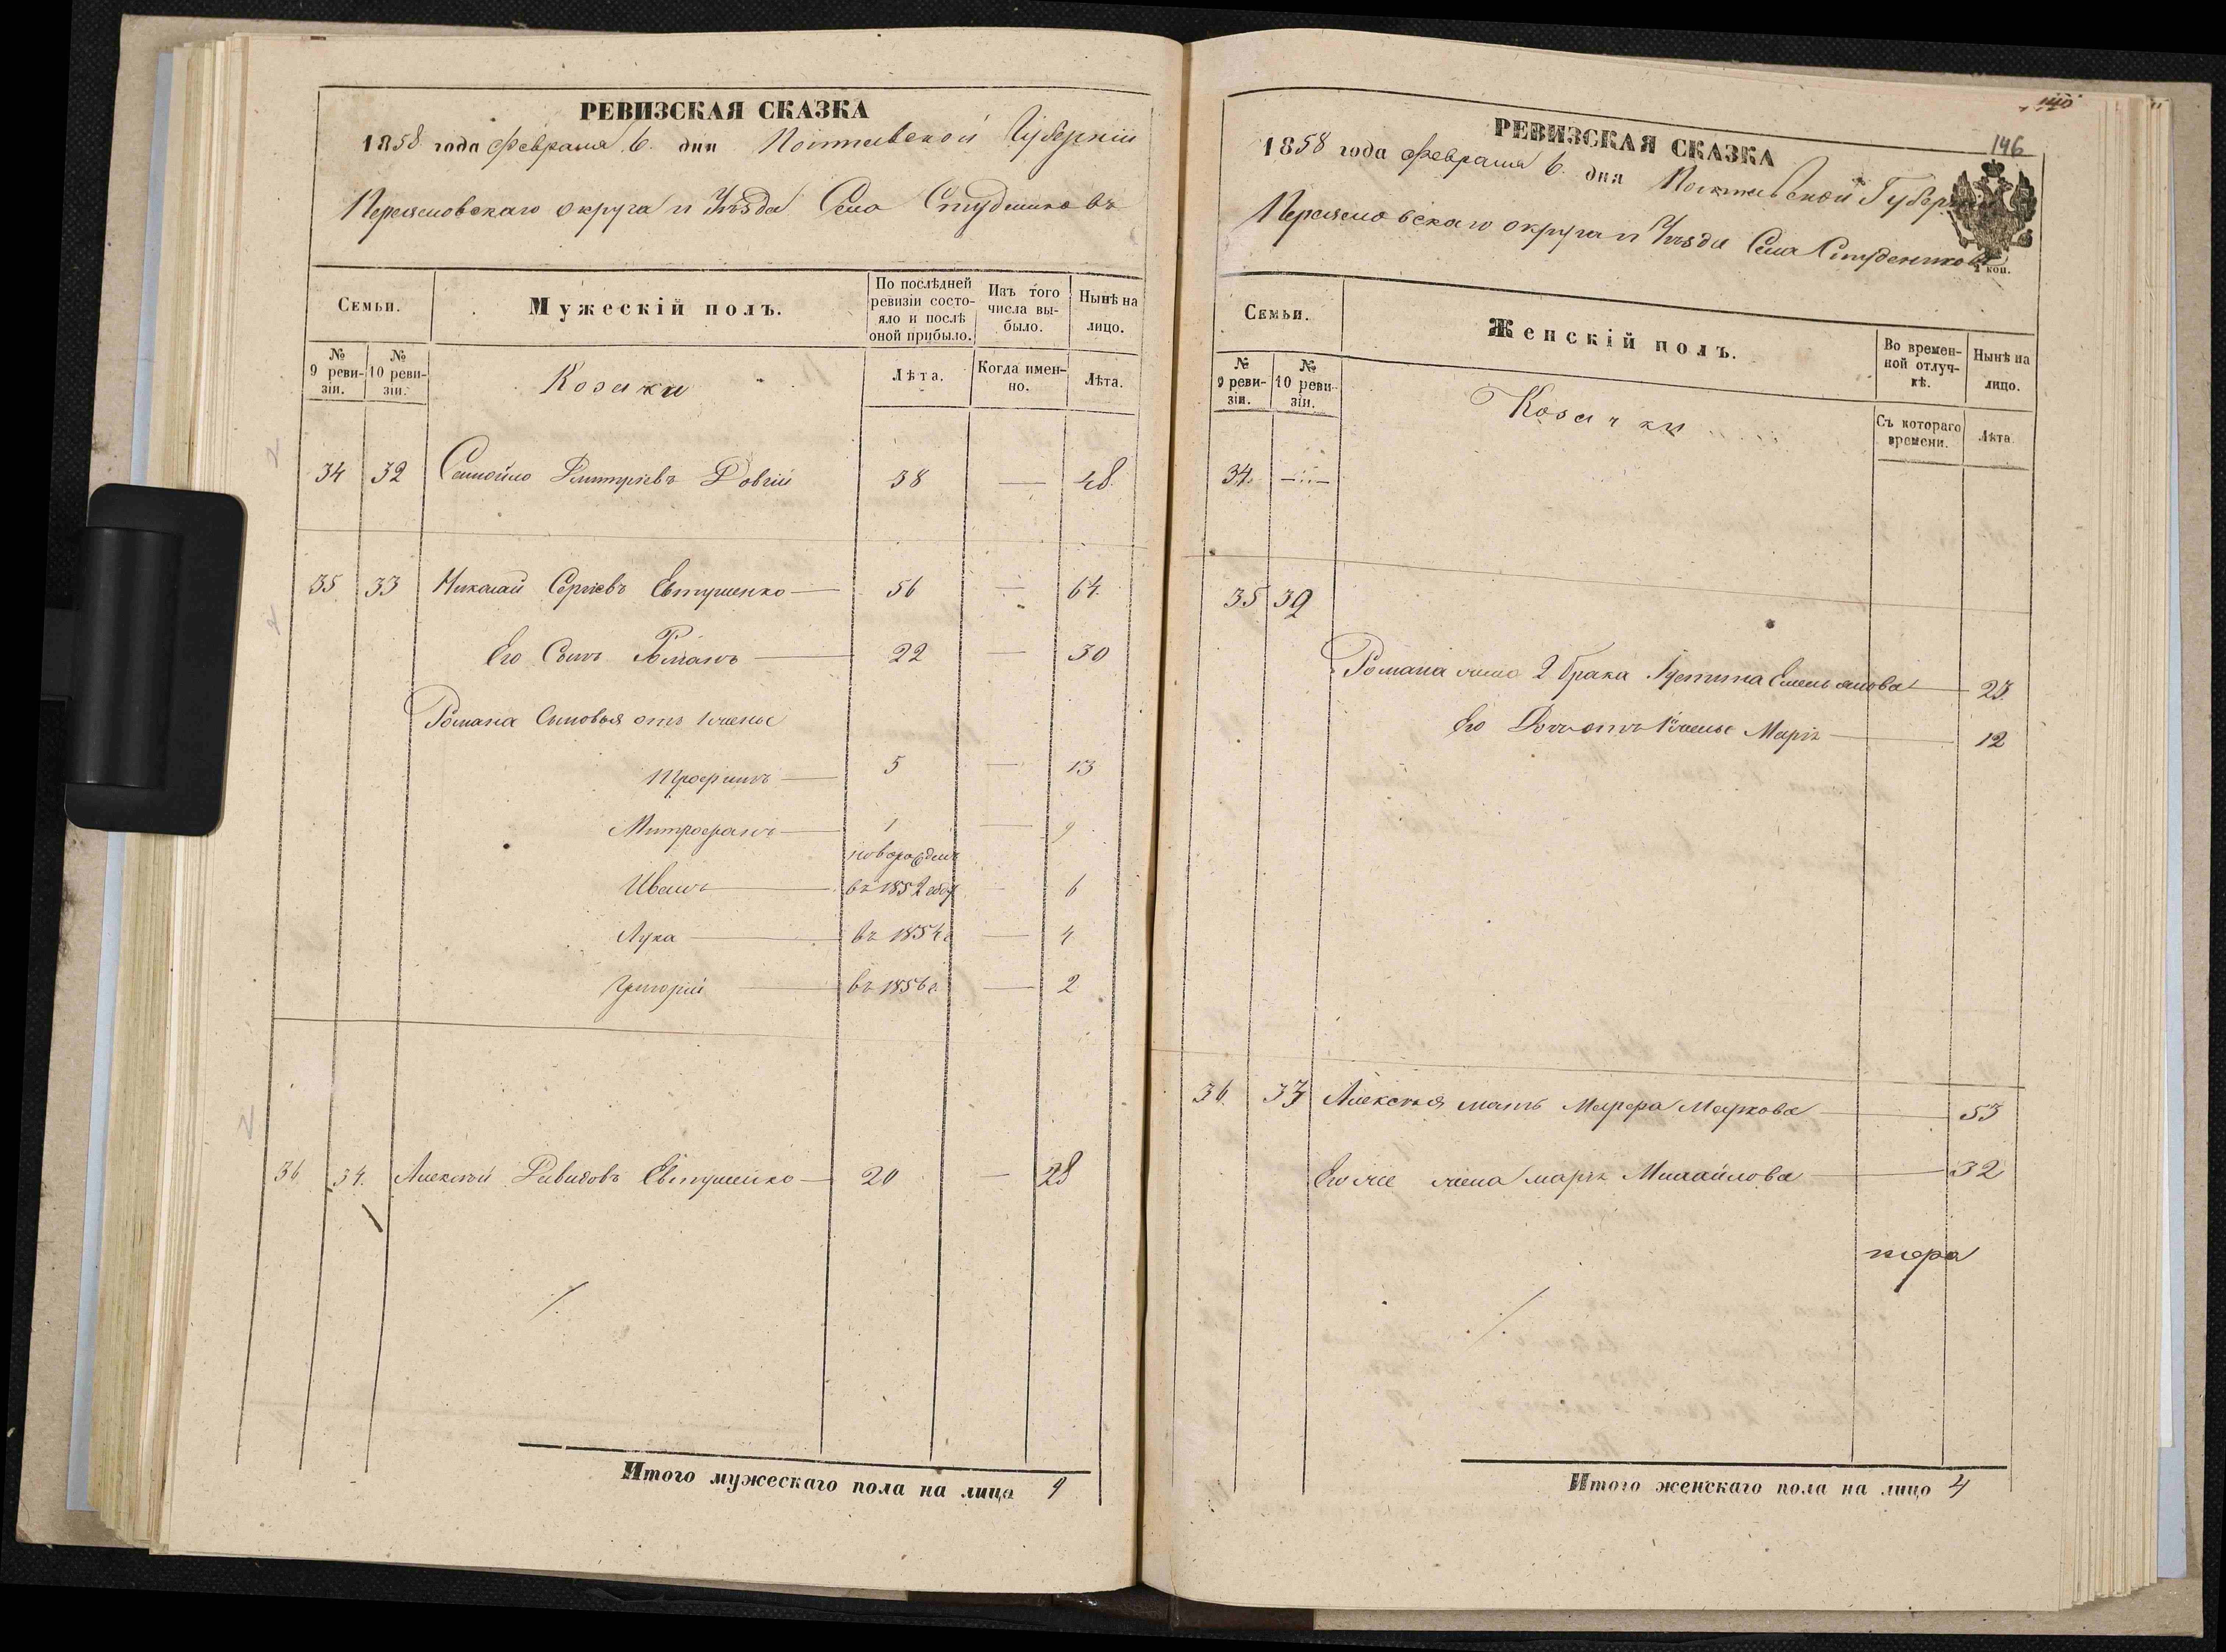 РЕВИЗСКАЯ СКАЗКА
1858 года Февраля 6 дня Полтавской Губерніи
Переяславскаго округа и Уѣзда Села Студениковъ
Семьи.
Мужескій полъ.
По послѣдней ревизіи состояло и послѣ оной прибыло.
Изъ того числа выбыло.
Нынѣ на лицо.
№ 9 ревизіи.
№ 10 ревизіи.
Козаки
Лѣта.
Когда именно.
Лѣта.
34 32 Самойло Дмитріевъ Довгій 38 — 48
35 33 Николай Сергіевъ Евтушенко — 56 — 64
Его Сынъ Романъ — 22 — 30
Романа Сыновья отъ 1 жены
Трофимъ — 5 — 13
Митрофанъ — 1 — 9
новорожден
Иванъ — въ 1852 — 6
Лука — въ 1854 г — 4
Григорій — въ 1856 г. — 2
36 34. Алексѣй Давидовъ Евтушенко — 20 — 28
Итого мужескаго пола на лицо 9
146
РЕВИЗСКАЯ СКАЗКА
1858 года Февраля 6. дня Полтавской Губерніи
Переяславскаго округа и Уѣзда Села Студениковъ
коп.
Семьи.
Женскій полъ.
Во временной отлучкѣ.
Нынѣ на лицо.
№ 9 ревизіи.
№ 10 ревизіи.
Козачки
Съ котораго времени.
Лѣта.
34. —
35 32
Романа жена 2 брака Устина Емельянова — 23
Его Дочь отъ 1й жены Марія — 12
36. 33 Алексѣя мать Марфа Маркова — 53
Его же жена марія Михайлова — 32
Итого женскаго пола на лицо 4